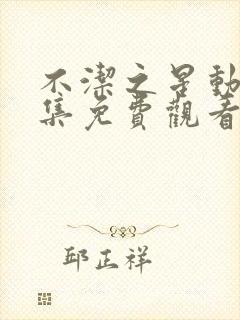 不潔之星動
集免費觀看
邱正祥